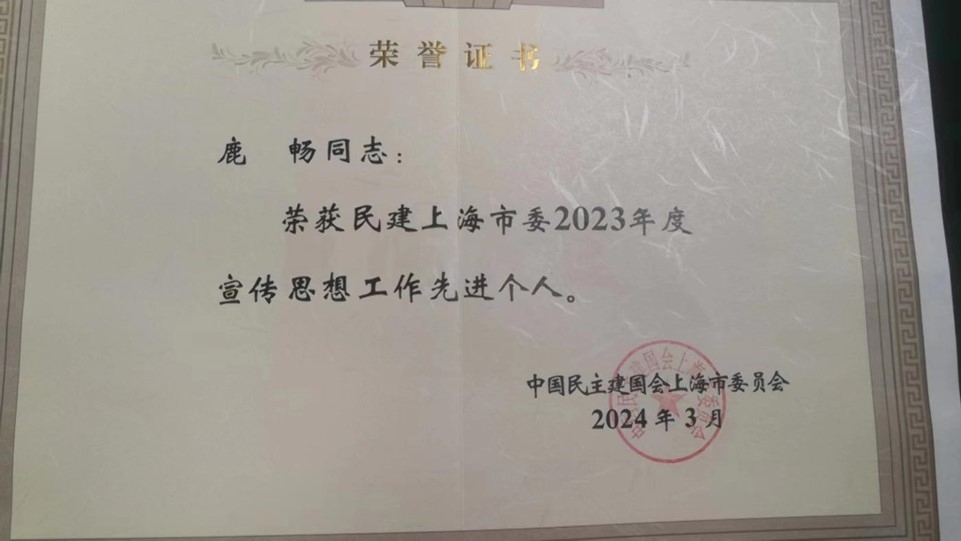 荣誉证书
鹿 畅同志：
荣获民建上海市委2023年度
宣传思想工作先进个人。
中国民主建国会上海市委员会
2024年3月